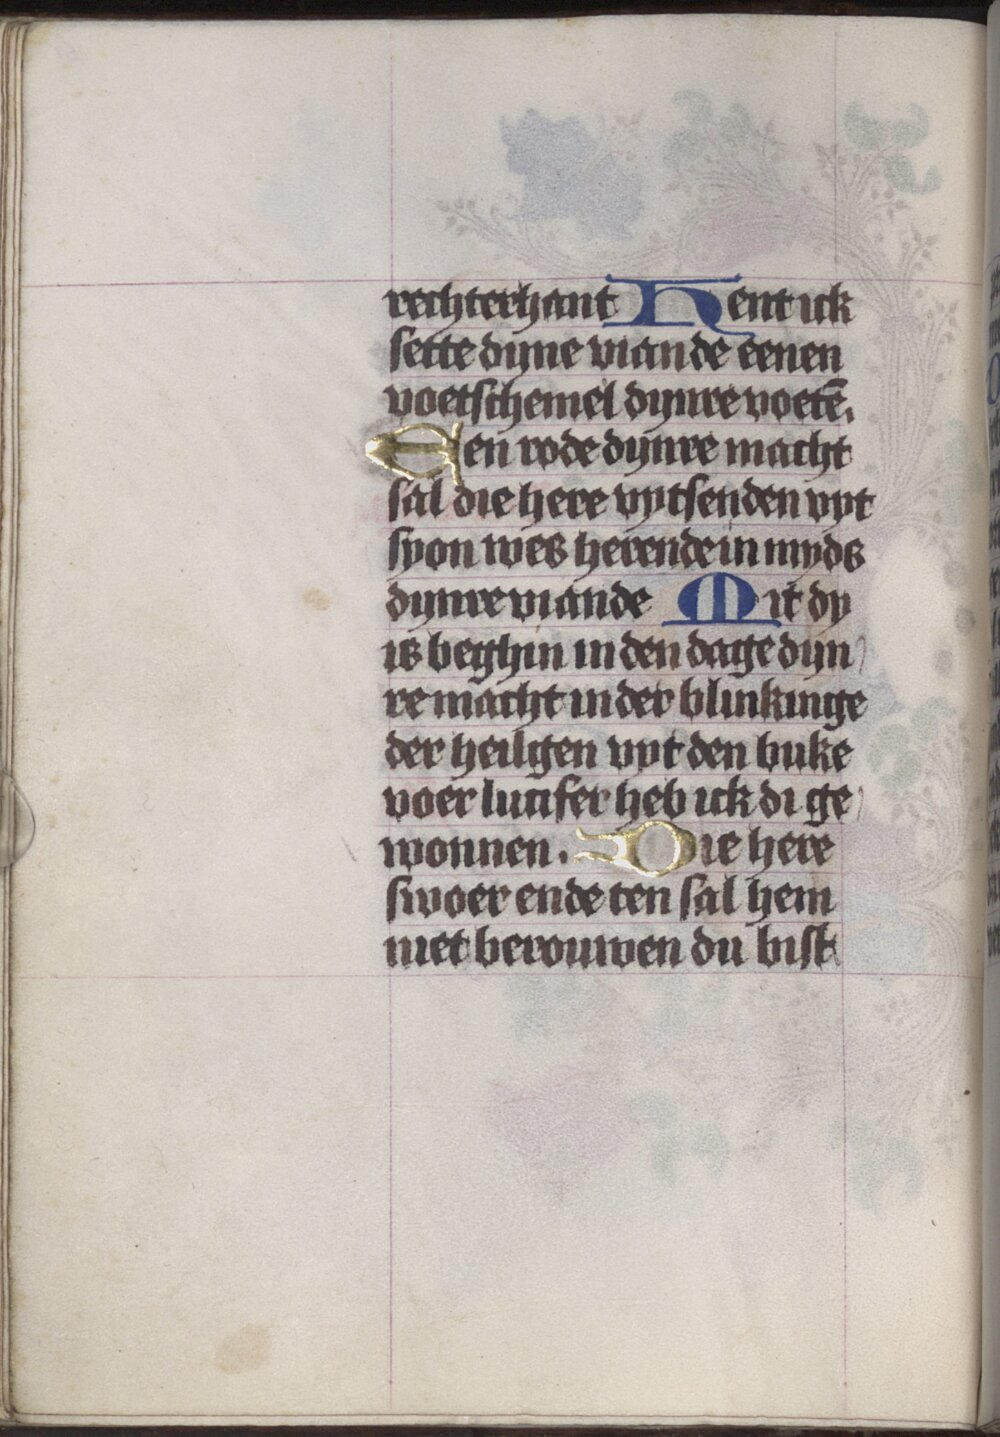 rechterhant Hent ick
sette dijne viande eenen
voetschemel dijnre voetē.
Een rode dijnre macht
sal die here vytsenden vyt
syon wes herende in myds
dijnre viande Mit dy
is beghin in den dage dijn
re macht in der blinkinge
der heiligen vyt den buke
voer lucifer heb ick di ge
wonnen. Die here
swoer ende ten sal hem
niet berouwen du bist